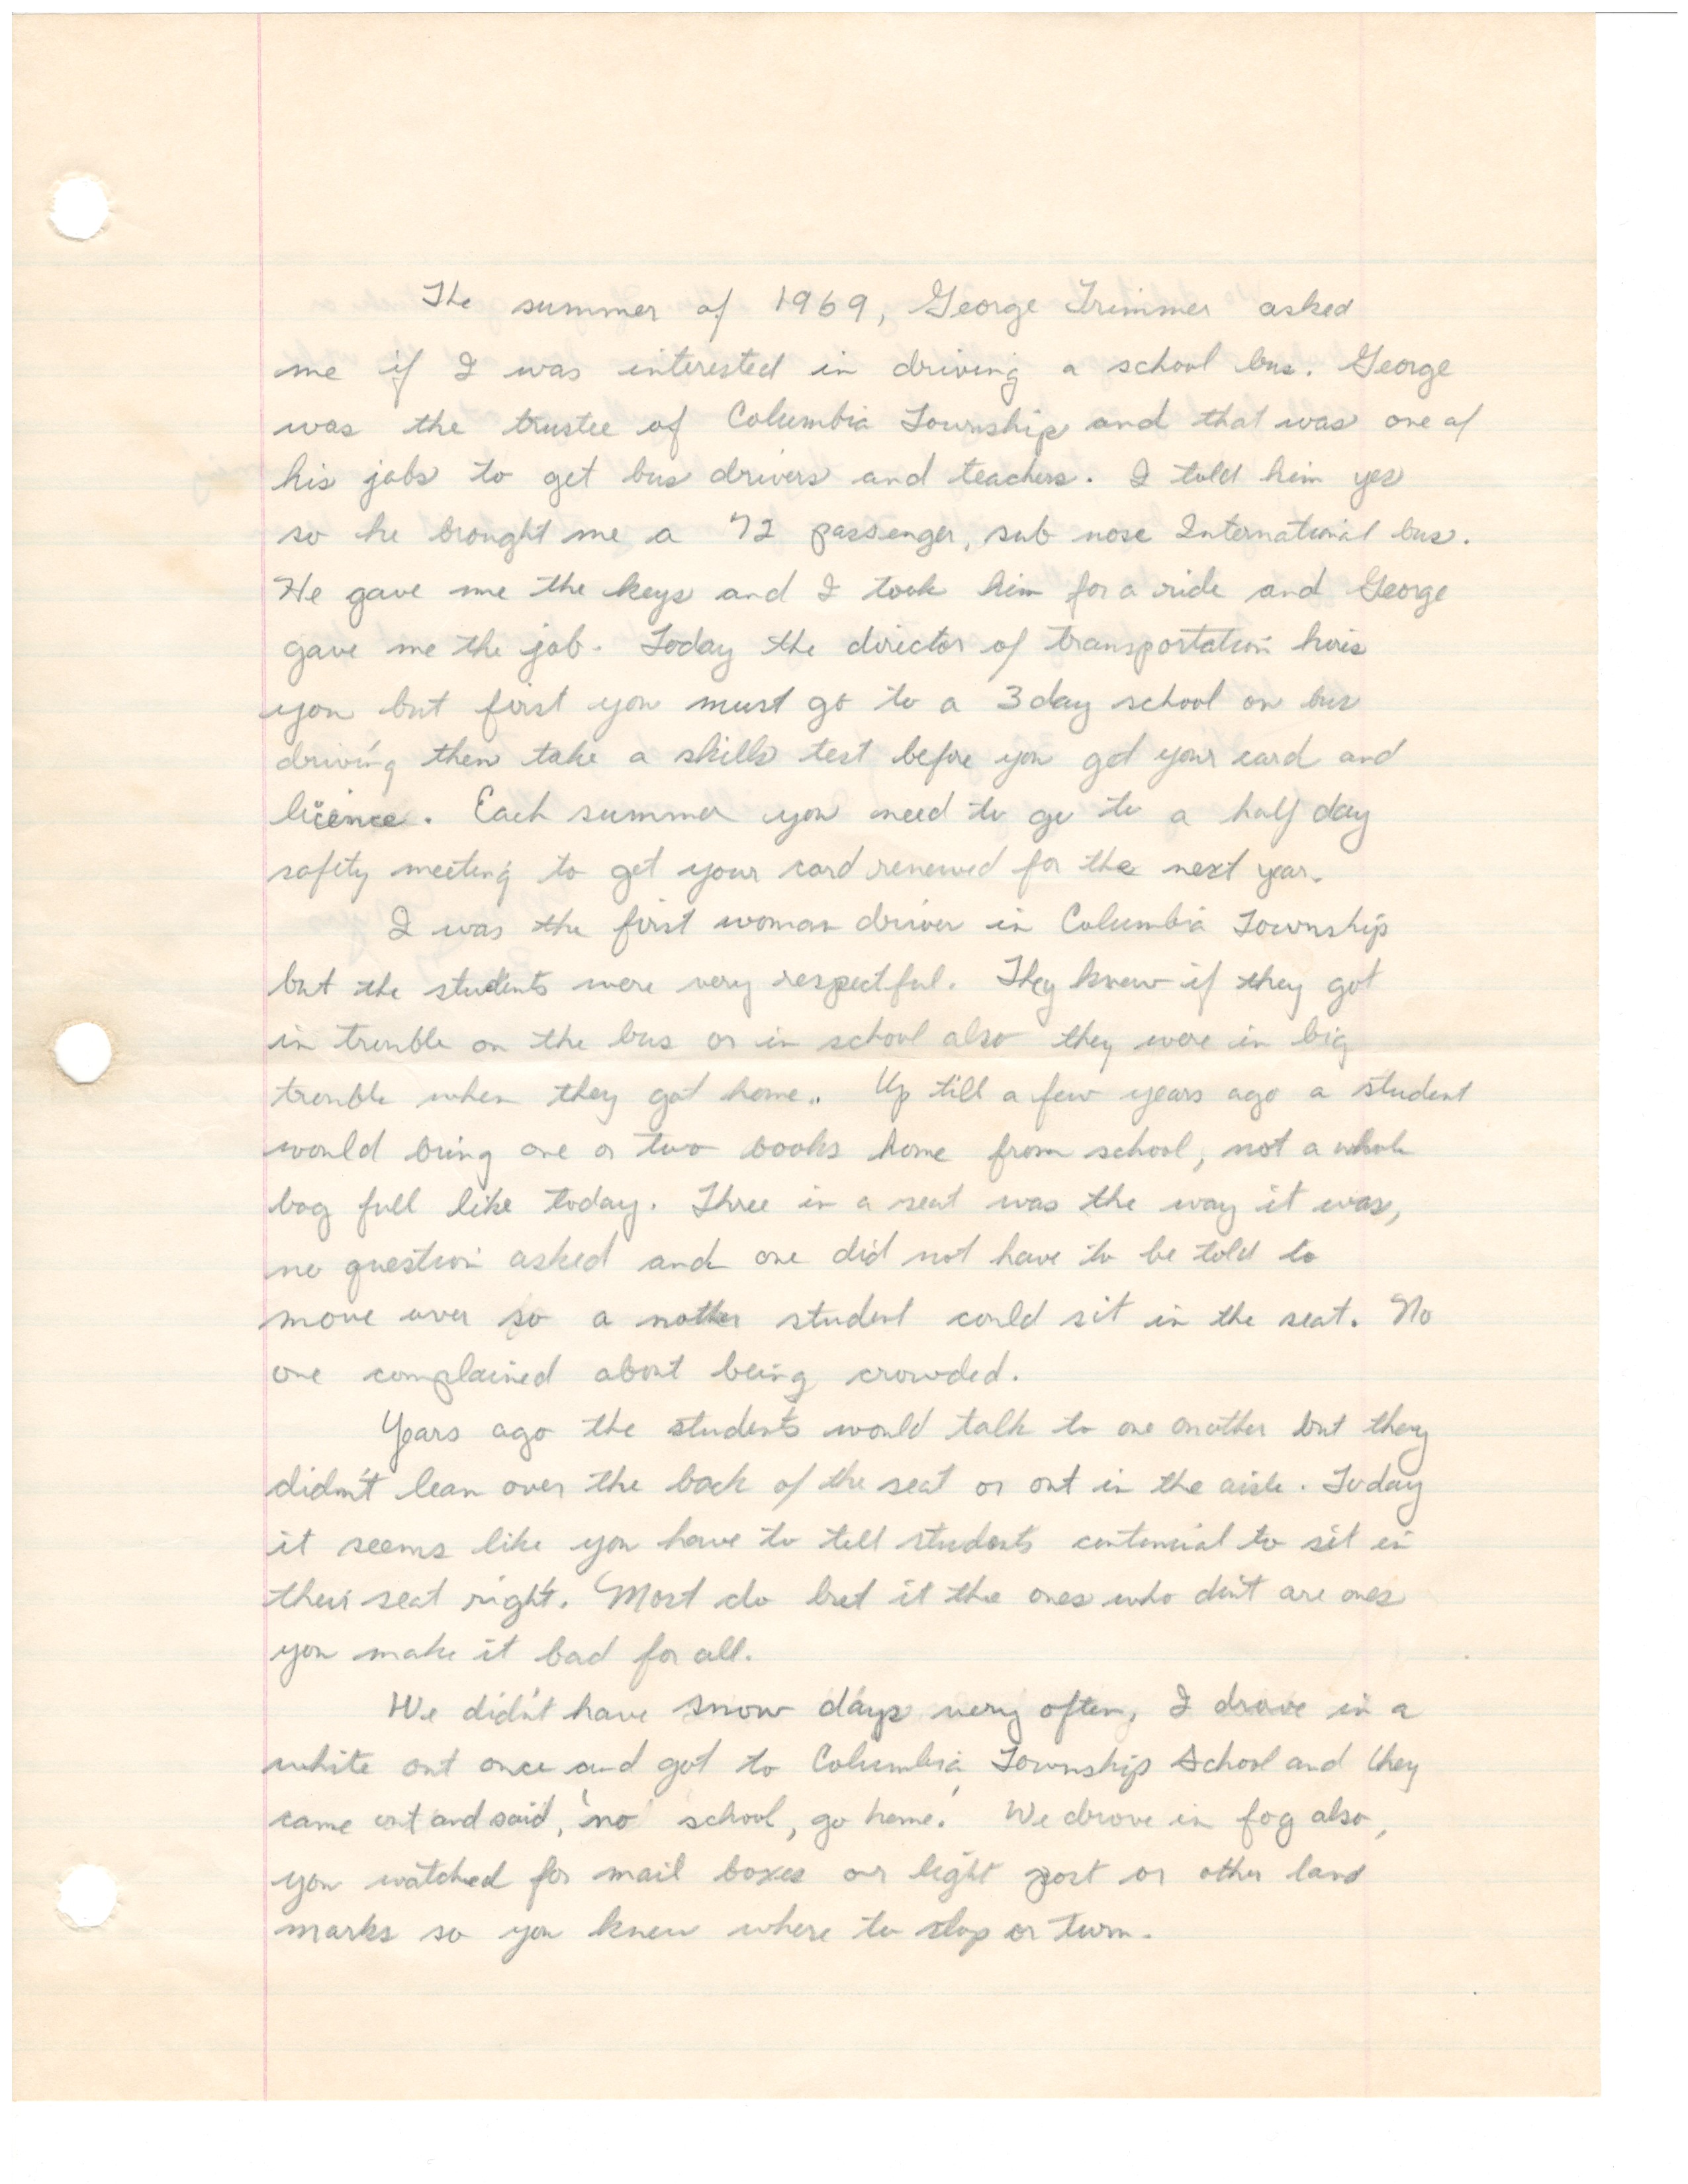 The summer of 1969, George Trimmer asked
me if I was interested in driving a school bus. George
was the trustee of Columbia Township and that was one of
his jobs to get bus drivers and teachers. I told him yes
so he brought me a 72 passenger, sub nose International bus.
He gave me the keys and I took him for a ride and George
gave me the job. Today the director of transportation hires
you but first you must go to a 3 day school on bus
driving then take a skills test before you get your card and
licence. Each summer you need to go to a half day
safety meeting to get your card renewed for the next year.
I was the first woman driver in Columbia Township
but the students were very respectful. They knew if they got
in trouble on the bus or in school also they were in big
trouble when they got home.. Up till a few years ago a student
would bring one or two books home from school, not a whole
bag full like today. Three in a seat was the way it was,
no question asked and one did not have to be told to
move over so a nother student could sit in the seat. No
one complained about being crowded.
Years ago the students would talk to one another but they
didn't lean over the back of the seat or out in the aisle. Today
it seems like you have to tell students contenual to sit in
their seat right. Most do but it the ones who din't are ones
you make it bad for all.
We didn't have snow days very often, I drove in a
white out once and got to Columbia Township School and they
came out and said, 'no school, go home.' We drove in fog also,
you watched for mail boxes or light post or other land
marks so you knew where to stop or turn.